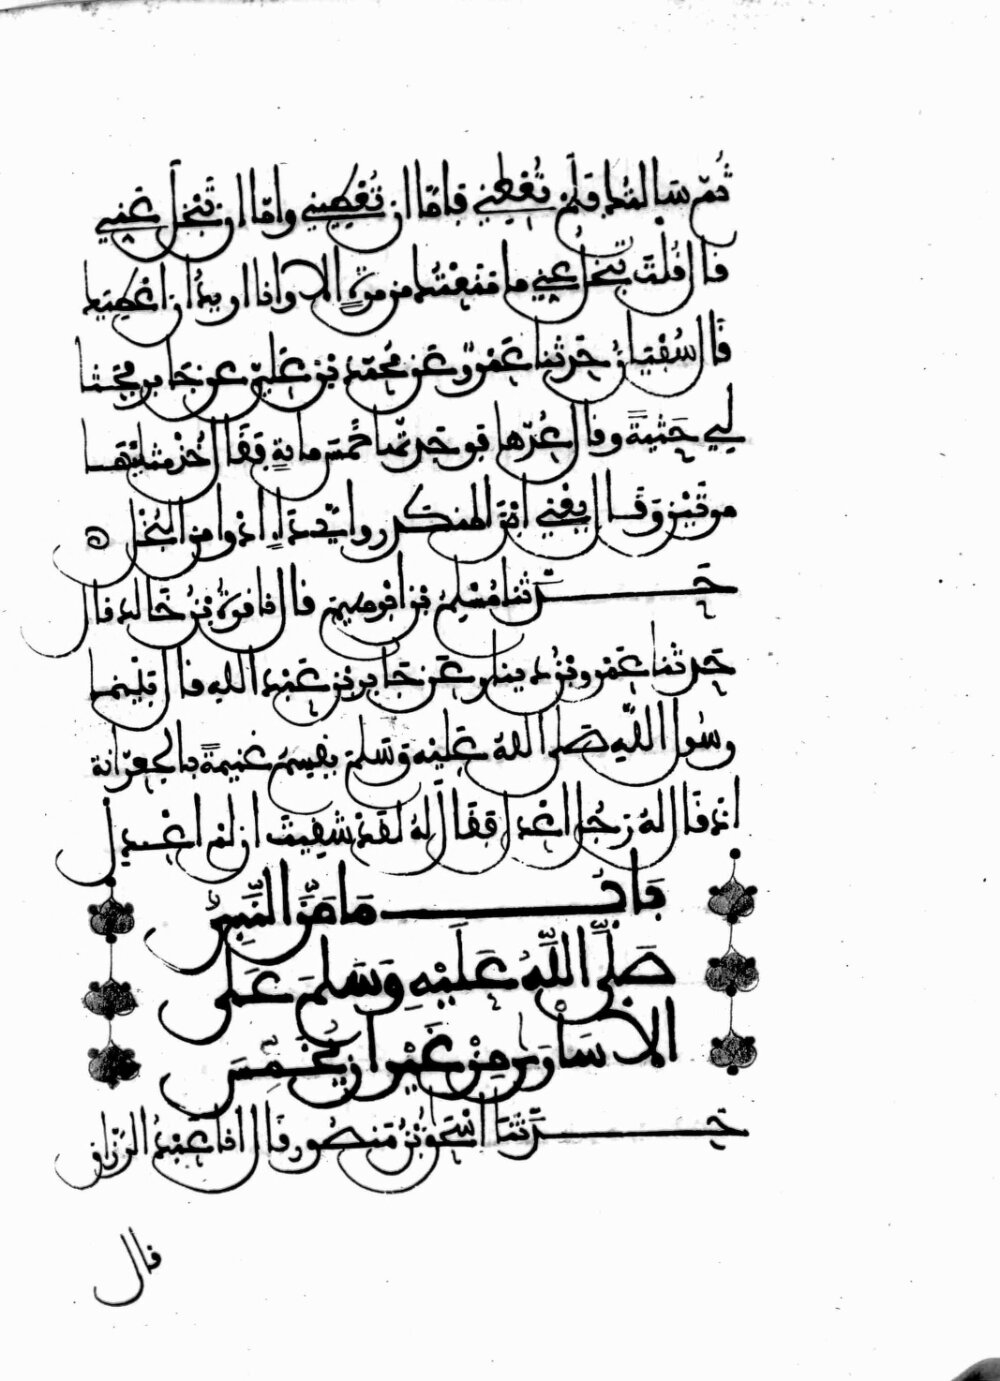 ثُمّ سَالتُك فَلَمْ تُعْطِنِي فَإمّا ان تُعْطِيَنِي وامّا ان تَبْخَلَ عَنِّي
قال قُلْتَ تَبْخَلُ عَنِّي ما مَنَعْتُك من مرةٍ الا وانا اريدُ ان اعْطِيَك
قَال سُفْيَانُ حَدثنا عَمْرٌو عَنْ مُحمّد بْنِ عَلِيٍّ عن جَابر فَحَثَا
لِي حَثْيَةً وقال عُدّها فوجدتّها خَمْسَ مائةٍ فقَال خُذْ مثلَيْهَا
مرتَيْنِ وَقَال يعْنِي ابْنَ المنكدر وايّ دَاءٍ ادْوا من البُخْل
حَدّثنا مُسْلِمُ بْنُ ابْرهيمَ قال نا قرةُ بْنُ خَالد قال
حَدثنا عَمْرو بْنُ دينار عَنْ جَابر بْنِ عَبْد الله قال بَيْنَما
رسُول اللّهِ صَلى اللهُ عَلَيْه وَسَلمَ يقسِمُ غنيمةً بالجعرّانة
اذ قَال لهُ رَجُل اعْدِل فقَال لَهُ لقَدْ شَقِيتَ ان لمْ اعْدِل
بَابُ مَا مَنَّ النَّبِيُّ
صَلَّى اللَّهُ عَلَيْهِ وَسَلَّمَ عَلَى
الاُسَارَى مِنْ غَيْرِ ان يُخَمِّسَ
حَدَّثَنَا اسْحَقُ بْنُ مَنصُور قَال انا عَبْدُ الرَزّاق
قال